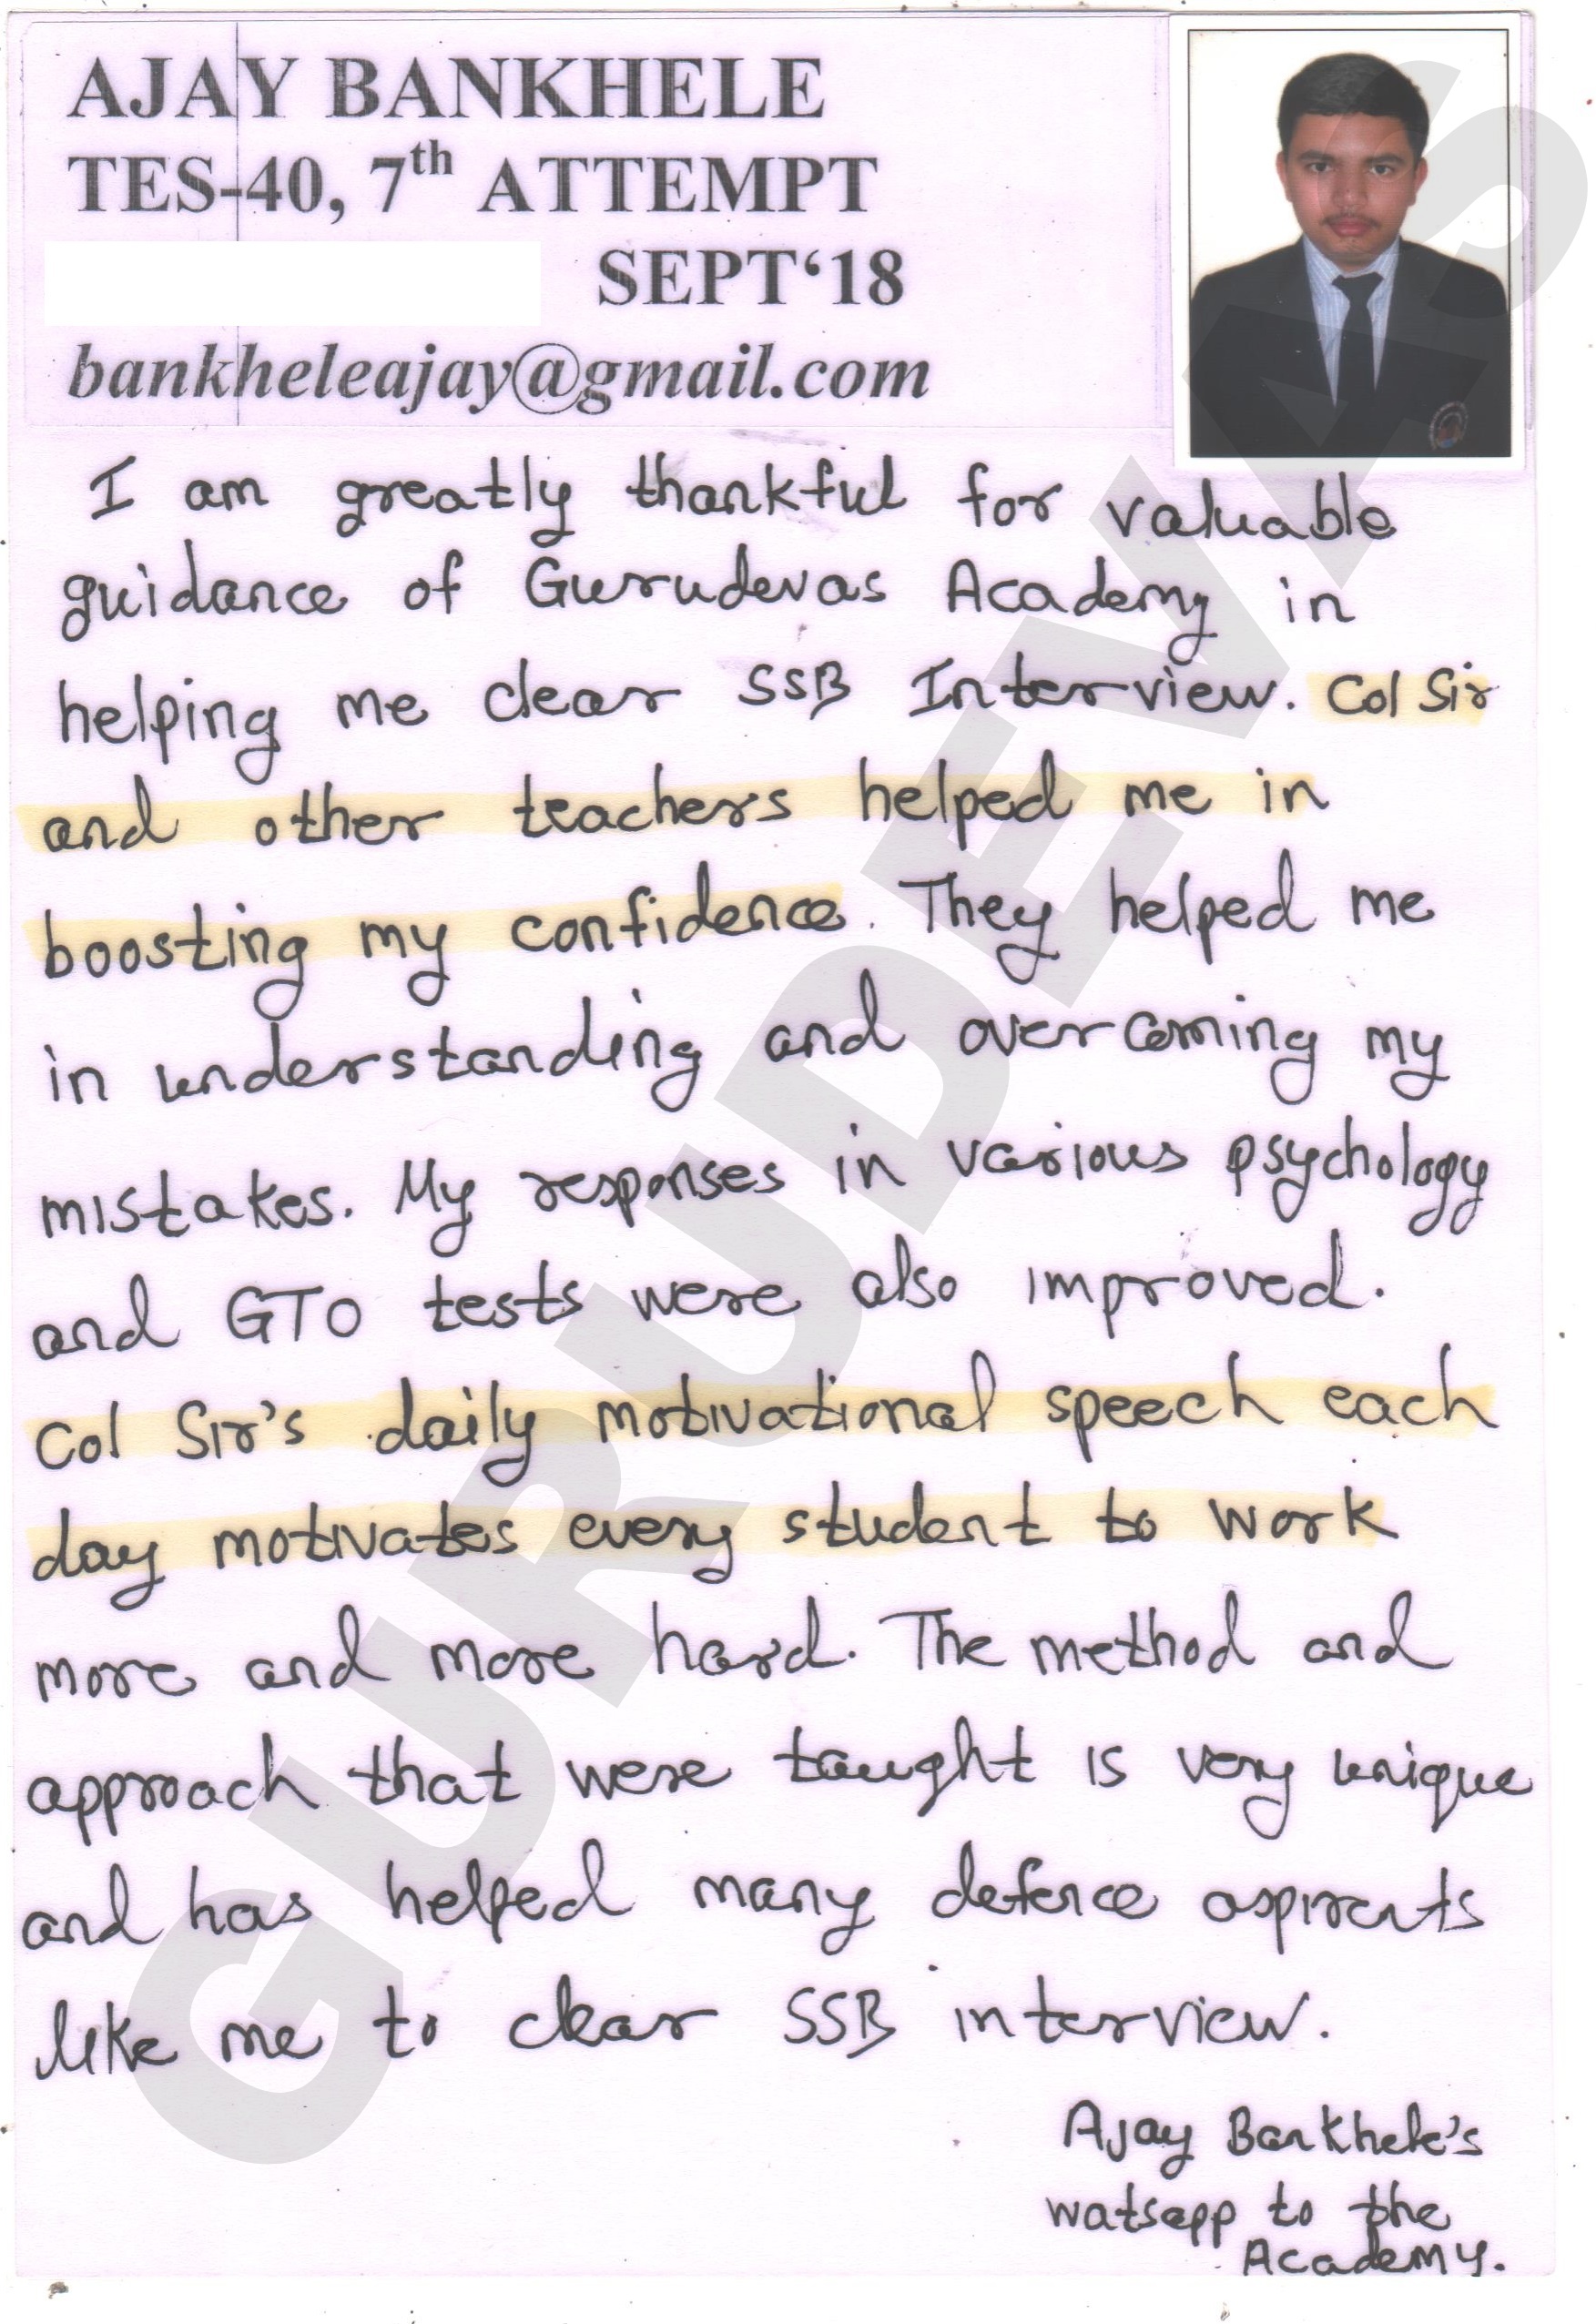 AJAY BANKHELE
TES-40, 7th ATTEMPT
SEPT‘18
bankheleajay@gmail.com
I am greatly thankful for valuable
guidance of Gurudevas Academy in
helping me clear SSB Interview. Col Sir
and other teachers helped me in
boosting my confidence. They helped me
in understanding and overcoming my
mistakes. My responses in various psychology
and GTO tests were also improved.
Col Sir's daily motivational speech each
day motivates every student to work
more and more hard. The method and
approach that were taught is very unique
and has helped many defence aspirants
like me to clear SSB interview.
Ajay Bankhele's
watsapp to the
Academy.
GURUDEVAS